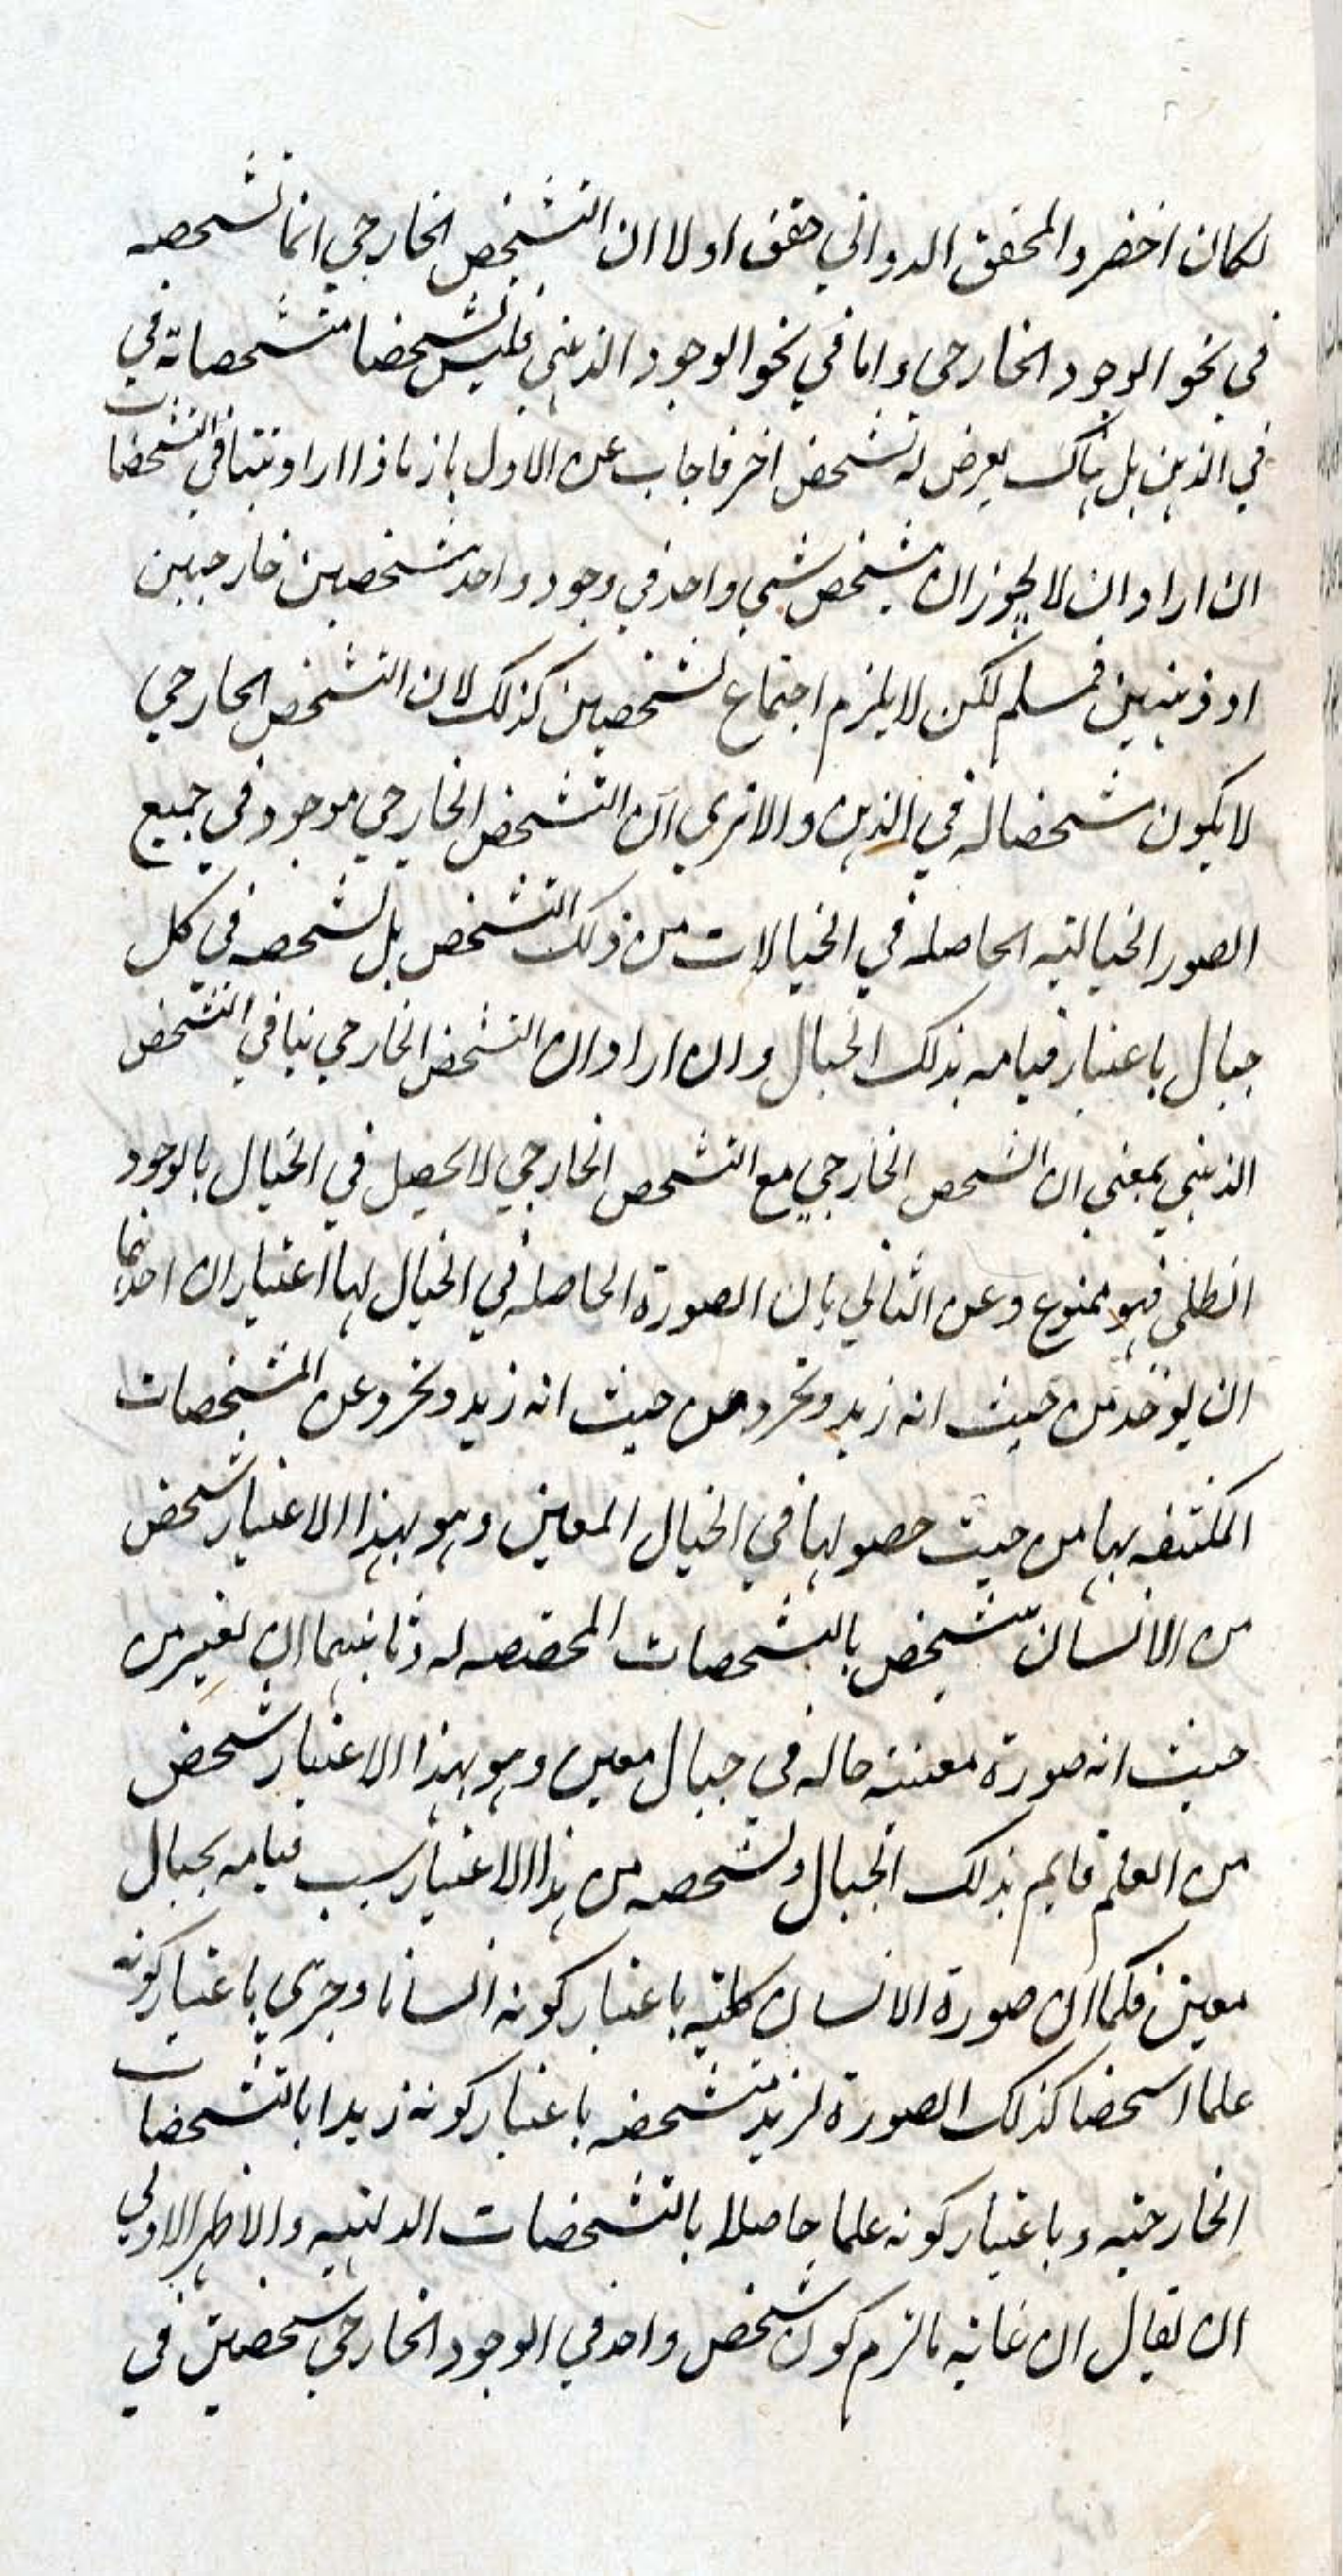 لكان اخضر والمحقق الدواني حقق اولا ان التشخص الخارجي انما تشخصه
في نحو الوجود الخارجي واما في نحو الوجود الذهني فليس تشخصا متشخصا به في
في الذهن بل هناك يعرض له تشخص اخر فاجاب عن الاول بانه اذا اراد بتنافي التشخصات
ان اراد ان لا يجوز ان يتشخص شي واحد في وجود واحد بتشخصين خارجيين
او ذهنيين فمسلم لكن لا يلزم اجتماع تشخصين كذلك لان التشخص الخارجي
لا يكون تشخصا له في الذهن والا ترى ان التشخص الخارجي موجود في جميع
الصور الخيالية الحاصله في الخيالات من ذلك التشخص بل تشخصه في كل
خيال باعتبار قيامه بذلك الخيال وان اراد ان التشخص الخارجي ينافي التشخص
الذهني بمعنى ان الشخص الخارجي مع التشخص الخارجي لا يحصل في الخيال بالوجود
الظلي فهو ممنوع وعن الثاني بان الصورة الحاصله في الخيال لها اعتباران احدهما
ان يوخذ من حيث انه زيد وتجرد من حيث انه زيد وتجرد عن المشخصات
المكتنفه بها من حيث حصولها في الخيال المعين وهو بهذا الاعتبار شخص
من الانسان متشخص بالتشخصات المختصه له وثانيهما ان يعتبر من
حيث انه صورة معينة حاله في خيال معين وهو بهذا الاعتبار شخص
من العلم قايم بذلك الخيال وتشخصه من هذا الاعتبار بسبب قيامه بخيال
معين فكما ان صورة الانسان كلية باعتبار كونه انسانا وجزي باعتبار كونه
علما شخصا كذلك الصورة لزيد متشخصه باعتبار كونه زيدا بالتشخصات
الخارجيه وباعتبار كونه علما حاصلا بالتشخصات الذهنيه والاظهر الاولى
ان يقال ان غايته ما لزم كون شخص واحد في الوجود الخارجي شخصين في